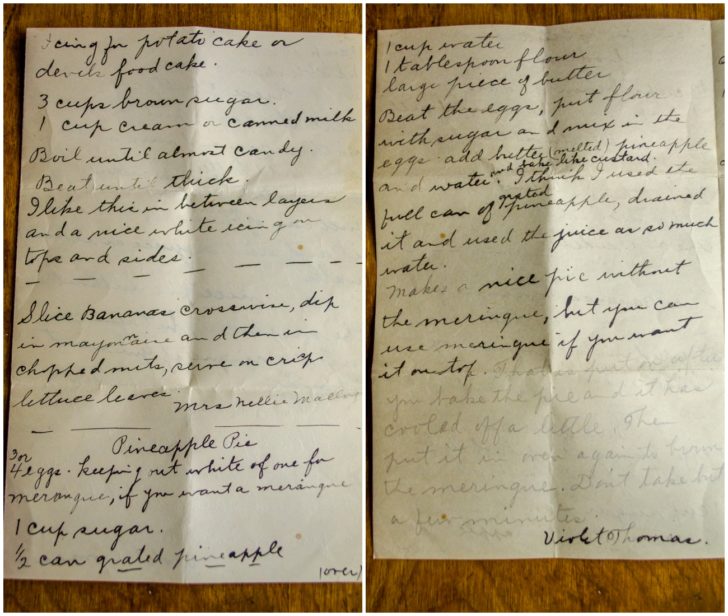 Icing for potato cake or
devils food cake.
3 cups brown sugar.
1 cup cream or canned milk
Boil until almost candy.
Beat until thick.
I like this in between layers
and a nice white icing on
tops and sides.
Slice Bananas crosswise, dip
in mayonnaise and then in
chopped nuts, serve on crisp
lettuce leaves.
Mrs Nellie
Pineapple Pie
3 or
4 eggs. keeping out white of one for
merangue, if you want a merangue
1 cup sugar.
1/2 can grated pineapple
(over)
1 cup water
1 tablespoon flour
large piece of butter
Beat the eggs, put flour
with sugar and mix in the
eggs add butter (melted) pineapple
and water. and bake like custard. I think I used the
full can of grated pineapple, drained
it and used the juice as so much
water.
Makes a nice pie without
the meringue, but you can
use meringue if you want
it on top. That is put on after
you bake the pie and it has
cooled off a little. The
put it in oven again to brown
the meringue. Don't take but
a few minutes.
Violet Thomas.